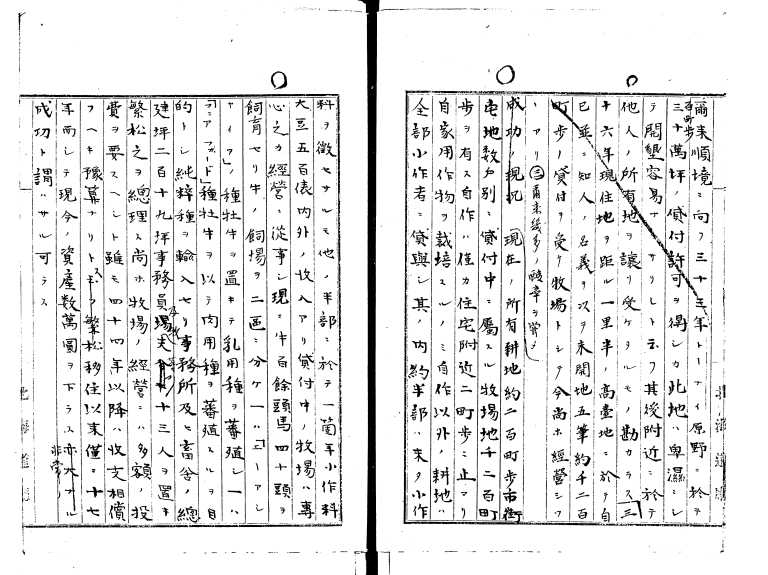 爾来順境ニ向フ三十三年トーナイ原野ニ於テ
百町歩
三十萬坪ノ貸付許可ヲ得シカ此地ハ卑濕ニシ
テ開墾容易ナサリシト云フ其後附近ニ於テ
他人ノ所有地ヲ讓リ受ケタルモノ勘カラス三
十六年現住地ヲ距ル一里半ノ高臺地ニ於テ自
己並ニ知人ノ名義ヲ以テ未開地五筆約千二百
町歩ノ貸付ヲ受ケ牧場トシテ今尚ホ經營シツ
ヽアリ
成功ノ現況 現在ノ所有耕地約二百町歩市街
宅地数戸別ニ貸付中ニ屬スル牧場地千二百町
歩ヲ有ス自作ハ僅カ住宅附近二町歩ニ止マリ
自家用作物ヲ栽培スルノミ自作以外ノ耕地ハ
全部小作者ニ貸與シ其ノ内約半部ハ未タ小作
料ヲ徴セサルモ他ノ半部ニ於テ一箇年小作料
大豆五百俵内外ノ收入アリ貸付中ノ牧場ハ專
心之カ經營ニ從事シ現ニ牛百餘頭馬四十頭ヲ
飼育セリ牛ノ飼場ヲ二區ニ分ケ一ハ「エーアシ
ヤイア」ノ種牡牛ヲ置キテ乳用種ヲ蕃殖シ一ハ
種牡牛ヲ以テ肉用種ヲ蕃殖スルヲ目
的トシ純粹種ヲ輸入セリ事務所及ヒ畜舍ノ總
建坪二百十九坪事務員牧夫等十三人ヲ置キ
繁松之ヲ總理ス尚ホ牧場ノ經營ニハ多額ノ投
費ヲ要スヘシト雖モ四十四年以降ハ收支相償
フヘキ豫算ナリト云フ繁松移住以来僅ニ十七
年而シテ現今ノ資産数萬圓ヲ下ラス亦大ナル
非常ノ
成功ト謂ハサル可ラス